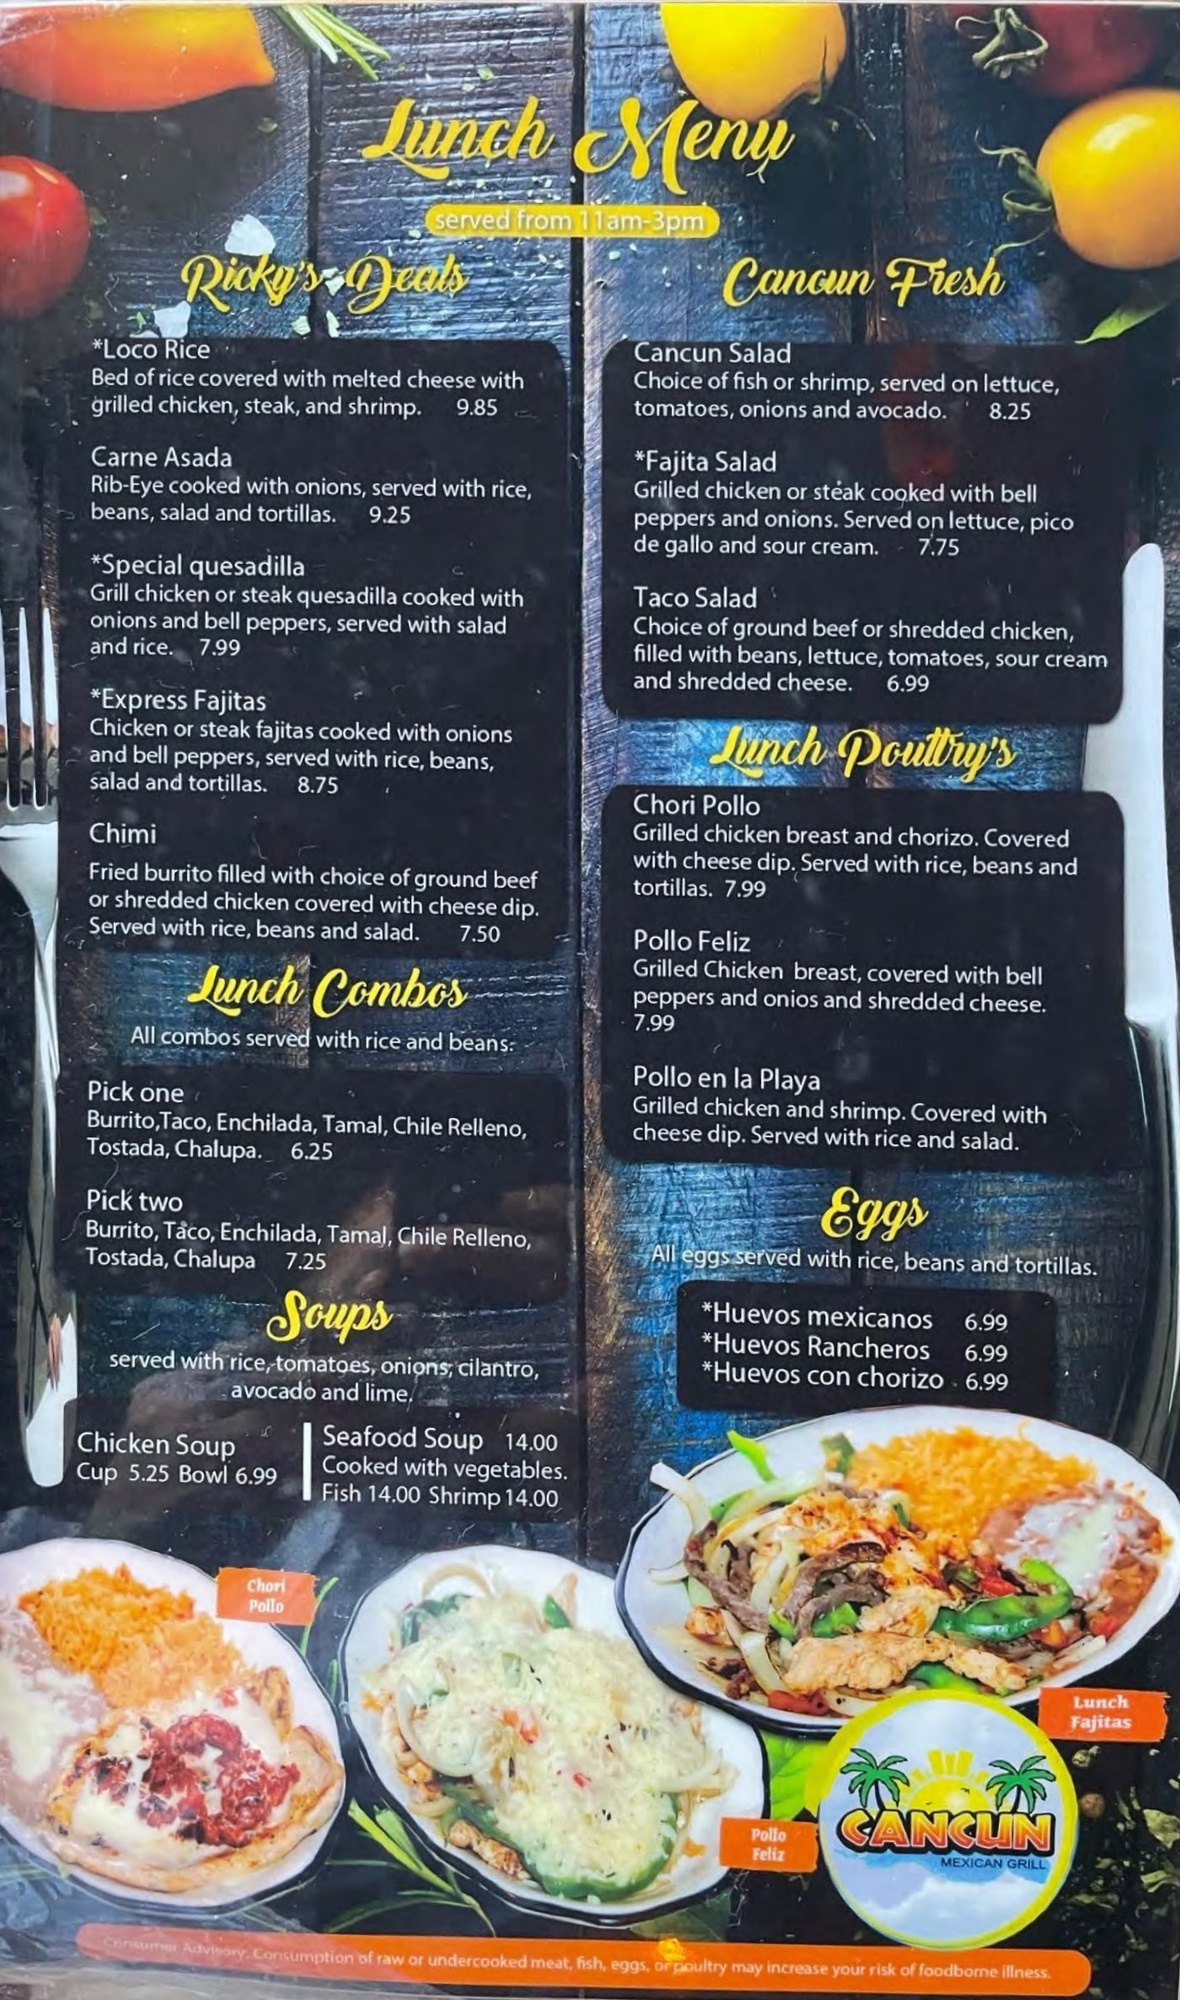 Lunch Menu
served from 11am-3pm
Ricky's Deals
*Loco Rice
Bed of rice covered with melted cheese with
grilled chicken, steak, and shrimp. 9.85
Carne Asada
Rib-Eye cooked with onions, served with rice,
beans, salad and tortillas. 9.25
*Special quesadilla
Grill chicken or steak quesadilla cooked with
onions and bell peppers, served with salad
and rice. 7.99
*Express Fajitas
Chicken or steak fajitas cooked with onions
and bell peppers, served with rice, beans,
salad and tortillas. 8.75
Chimi
Fried burrito filled with choice of ground beef
or shredded chicken covered with cheese dip.
Served with rice, beans and salad. 7.50
Lunch Combos
All combos served with rice and beans.
Pick one
Burrito,Taco, Enchilada, Tamal, Chile Relleno,
Tostada, Chalupa. 6.25
Pick two
Burrito, Taco, Enchilada, Tamal, Chile Relleno,
Tostada, Chalupa 7.25
Soups
served with rice, tomatoes, onions, cilantro,
avocado and lime.
Chicken Soup
Cup 5.25 Bowl 6.99
Seafood Soup 14.00
Cooked with vegetables.
Fish 14.00 Shrimp 14.00
Cancun Fresh
Cancun Salad
Choice of fish or shrimp, served on lettuce,
tomatoes, onions and avocado. 8.25
*Fajita Salad
Grilled chicken or steak cooked with bell
peppers and onions. Served on lettuce, pico
de gallo and sour cream. 7.75
Taco Salad
Choice of ground beef or shredded chicken,
filled with beans, lettuce, tomatoes, sour cream
and shredded cheese. 6.99
Lunch Poultry's
Chori Pollo
Grilled chicken breast and chorizo. Covered
with cheese dip. Served with rice, beans and
tortillas. 7.99
Pollo Feliz
Grilled Chicken breast, covered with bell
peppers and onios and shredded cheese.
7.99
Pollo en la Playa
Grilled chicken and shrimp. Covered with
cheese dip. Served with rice and salad.
Eggs
All eggs served with rice, beans and tortillas.
*Huevos mexicanos 6.99
*Huevos Rancheros 6.99
*Huevos con chorizo 6.99
Chori
Pollo
Pollo
Feliz
Lunch
Fajitas
CANCUN
MEXICAN GRILL
Consumer Advisory: Consumption of raw or undercooked meat, fish, eggs, or poultry may increase your risk of foodborne illness.